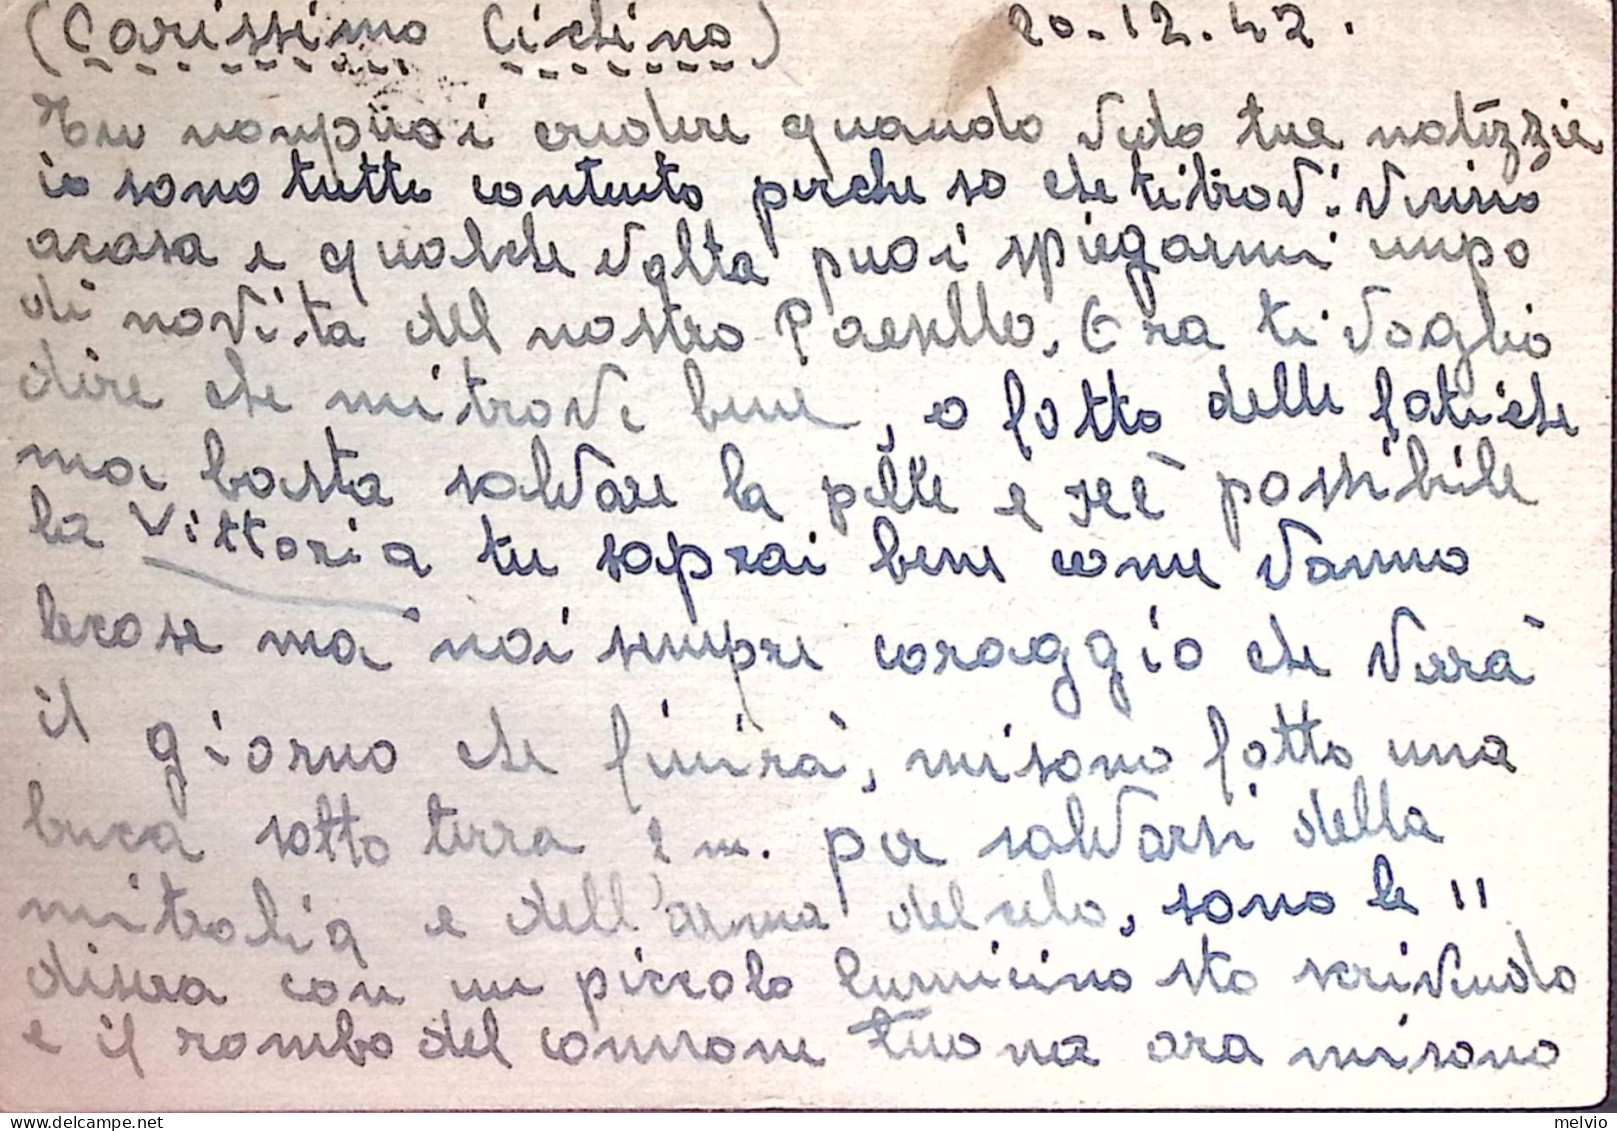 (Carissimo Cichino) 20-12.42.
Tu nonpuoi credere quando vedo tue notizzie
io sono tutto contento perche so che ti trovi vicino
acasa e qualche volta puoi spiegarmi unpo
di novita del nostro Paesello, Ora ti voglio
dire che mi trovo bene, o fatto delle fatiche
ma basta salvare la pelle e è possibile
la Vittoria tu saprai bene come vanno
lecose ma noi sempre coraggio che verrà
il giorno che finirà, misono fatto una
buca sotto terra 2 m. per salvarsi della
mitralia e dell'arma delcelo, sono le 11
disera con un piccolo lumicino sto scrivendo
e il rombo del connone tuona ora misono
melvio